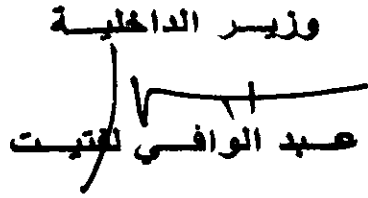 وزيـر الداخليـة
عبـد الوافـي لفتيـت